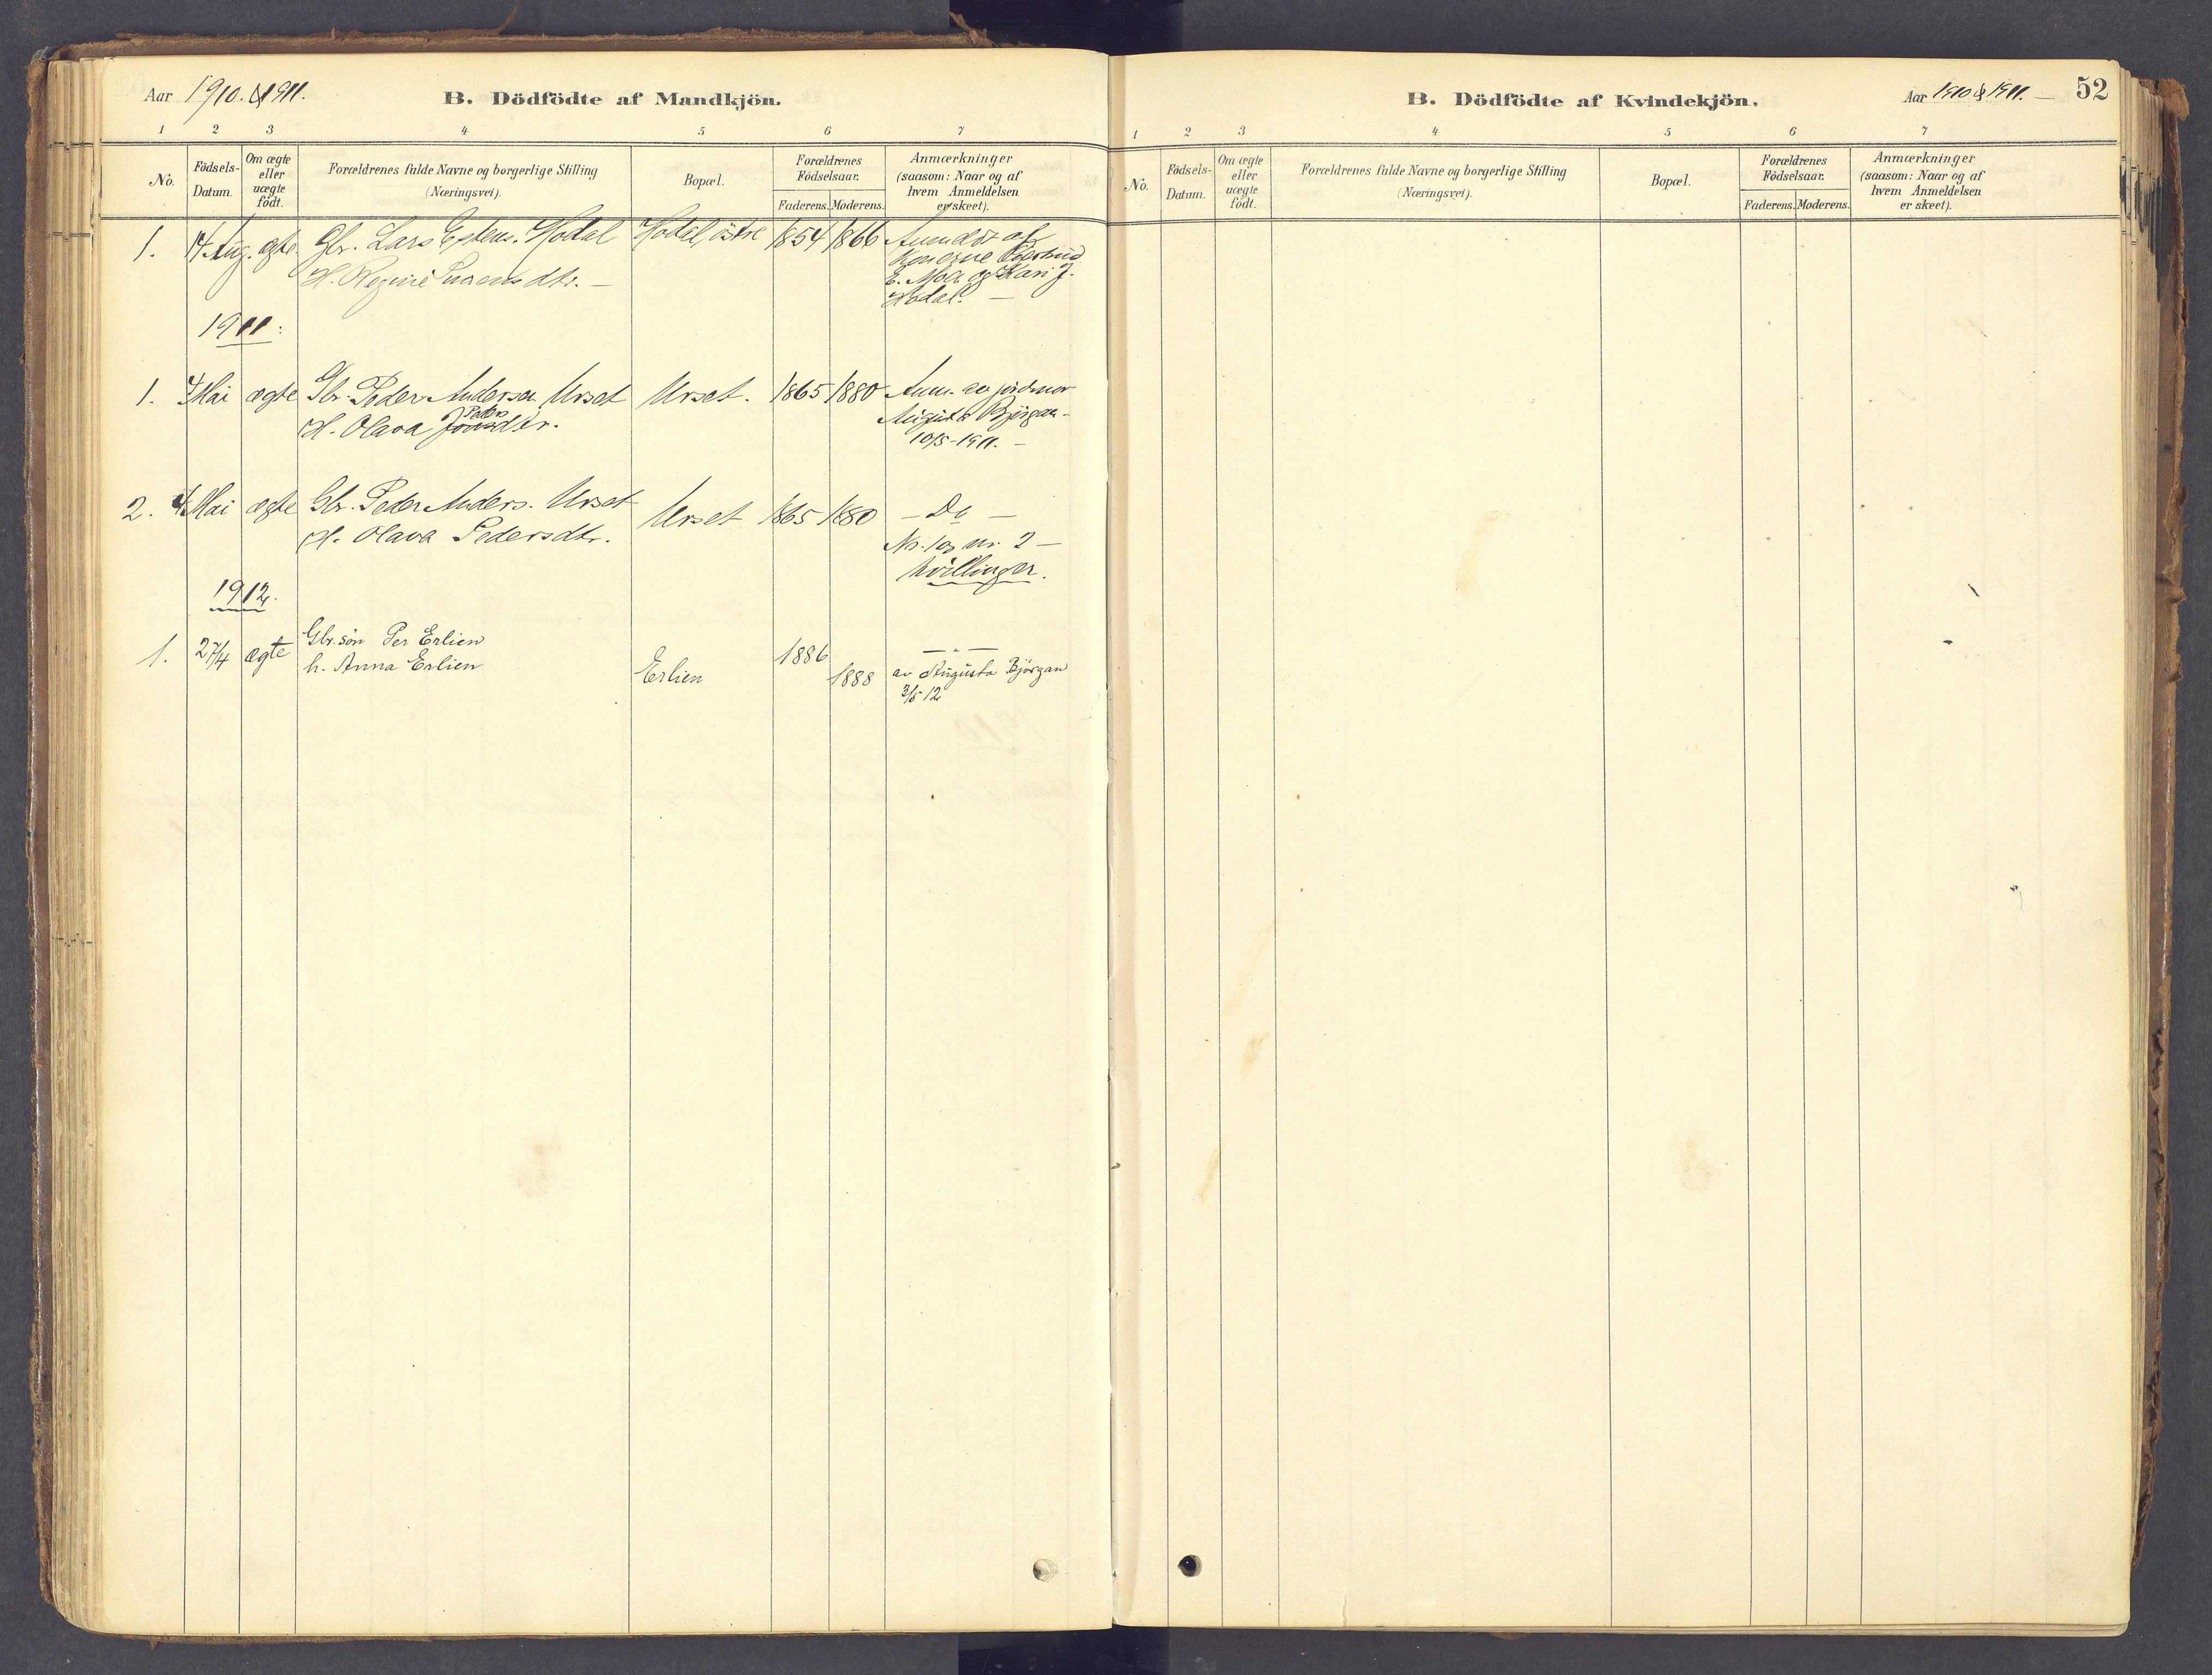 Aar 1910 & 1911.
B. Dödfödte af Mandkjön.
1 2 3 4 5 6 7
No.
Födsels-
Datum.
Om ægte
eller
uægte
födt.
Forældrenes fulde Navne og borgerlige Stilling
(Næringsvei).
Bopæl.
Forældrenes
Födselsaar.
Faderens. Moderens.
Anmærkninger
(saasom: Naar og af
hvem Anmeldelsen
er skeet).
1. 14 Aug. ægte. Gbr. Lars Estens. Hodal Hodal, östre 1854 1866 Anmeldt af
H. Regine dtr. –
Konerne
E. Moen og Kari J.
Hodal. –
1911:
1. 4 Mai ægte Gbr. Peder Andersen Urset Urset. 1865 1880 Anm. av jordmor
H. Olava Peders dtr.
Augusta Bjørgan
10/5-1911. –
2. 4 Mai ægte Gbr. Peder Anders. Urset Urset 1865 1880 – Do –
H. Olava Pedersdtr.
No. 1 og nr. 2 –
tvillinger.
1912.
1. 27/4 ægte Gbr.sön Per Erlien
h. Anna Erlien
Erlien 1886 1888
— " —
av Augusta Bjørgan
3/5 12
B. Dödfödte af Kvindekjön.
Aar 1910 & 1911. –
52
1 2 3 4 5 6 7
No.
Födsels-
Datum.
Om ægte
eller
uægte
födt.
Forældrenes fulde Navne og borgerlige Stilling
(Næringsvei).
Bopæl.
Forældrenes
Födselsaar.
Faderens. Moderens.
Anmærkninger
(saasom: Naar og af
hvem Anmeldelsen
er skeet).